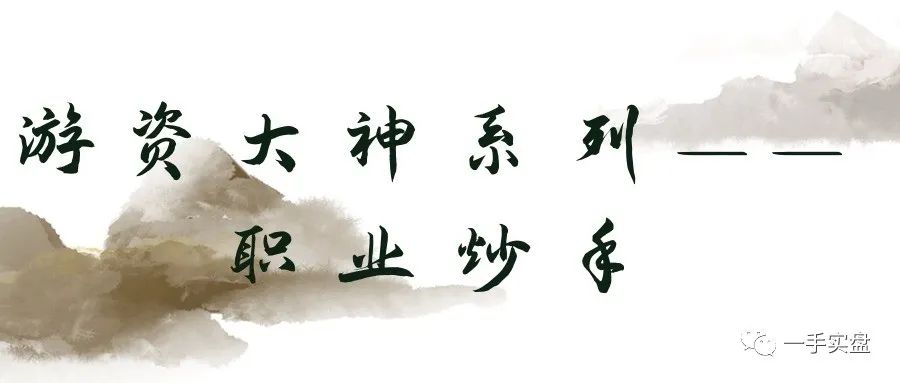 游资大神系列——
职业炒手
一手实盘